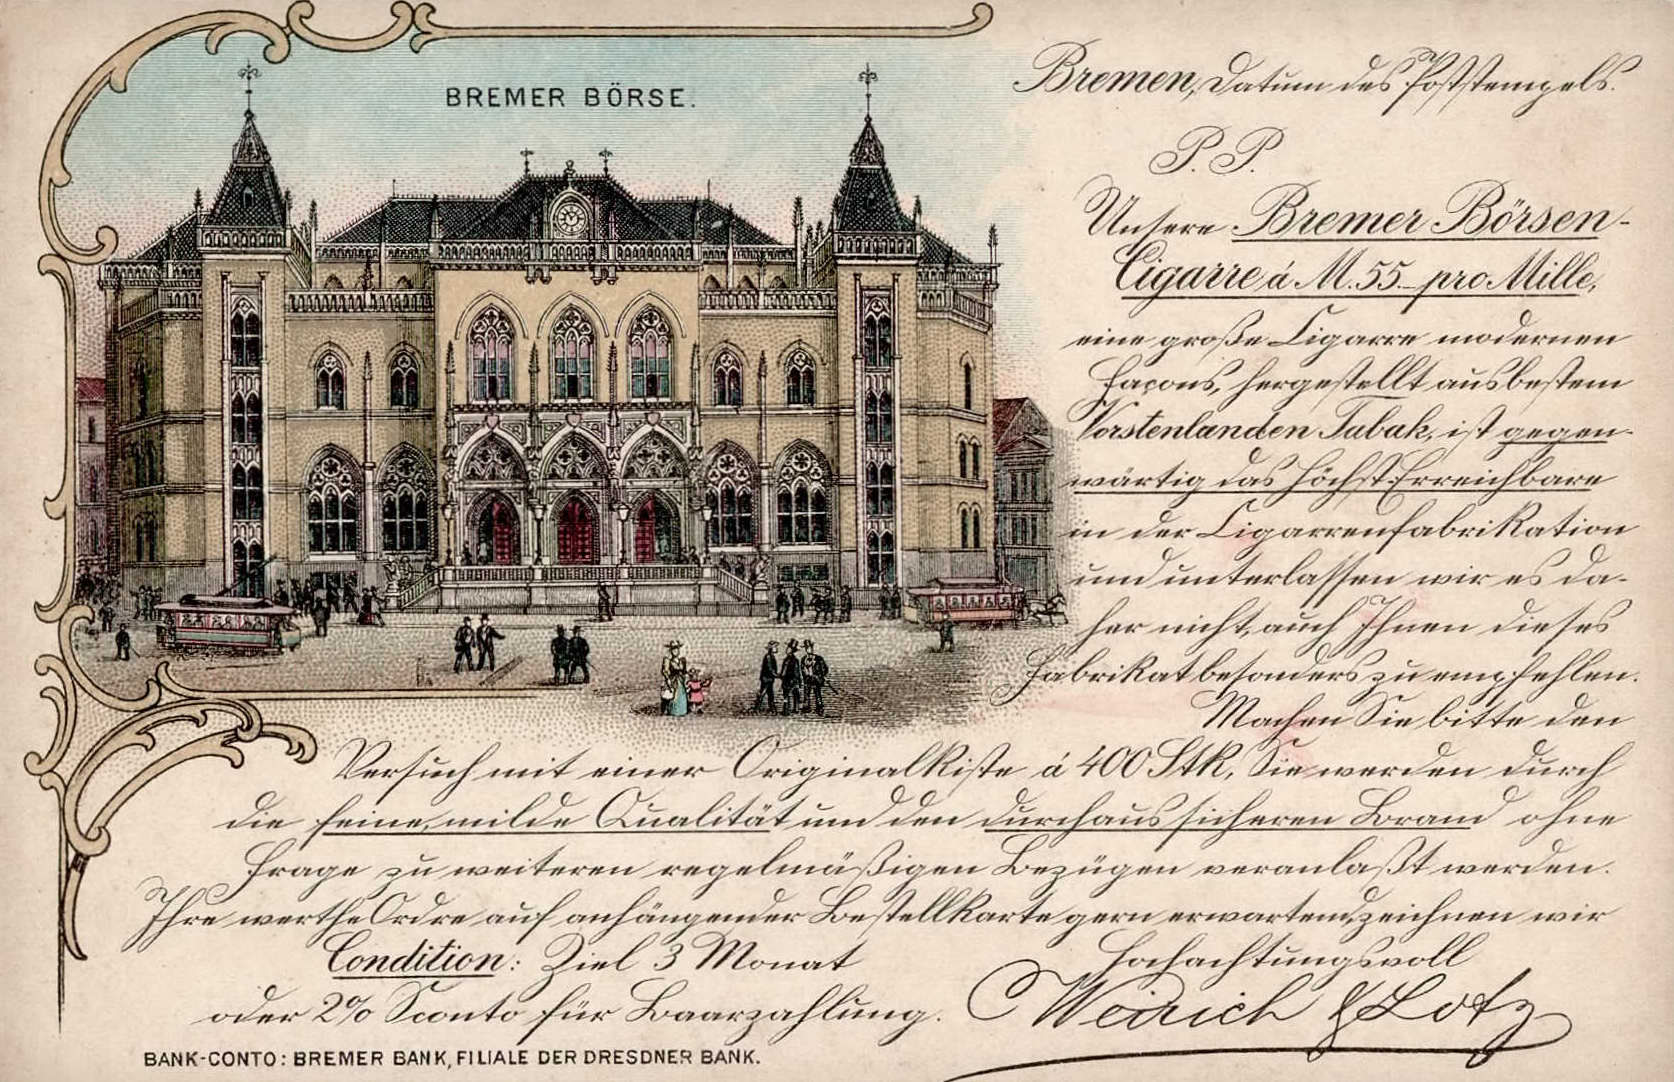 BREMER BÖRSE.
Bremen, Datum des Poststempels.
P. P.
Unsere Bremer Börsen-
Cigarre á M. 55.– pro Mille,
eine große Cigarre modernen
Façons, hergestellt aus bestem
Vorstenlanden Tabak, ist gegen-
wärtig das Höchst-Erreichbare
in der Cigarrenfabrikation
und unterlassen wir es da-
her nicht, auch Ihnen dieses
Fabrikat besonders zu empfehlen.
Machen Sie bitte den
Versuch mit einer Originalkiste á 400 Stk, Sie werden durch
die feine, milde Qualität und den durchaus sicheren Brand ohne
Frage zu weiteren regelmäßigen Bezügen veranlaßt werden.
Ihre werthe Ordre auf anhängender Bestellkarte gern erwartend, zeichnen wir
Condition: Ziel 3 Monat Hochachtungsvoll
oder 2% Sconto für Baarzahlung. Weirich & Lotz
BANK-CONTO: BREMER BANK, FILIALE DER DRESDNER BANK.